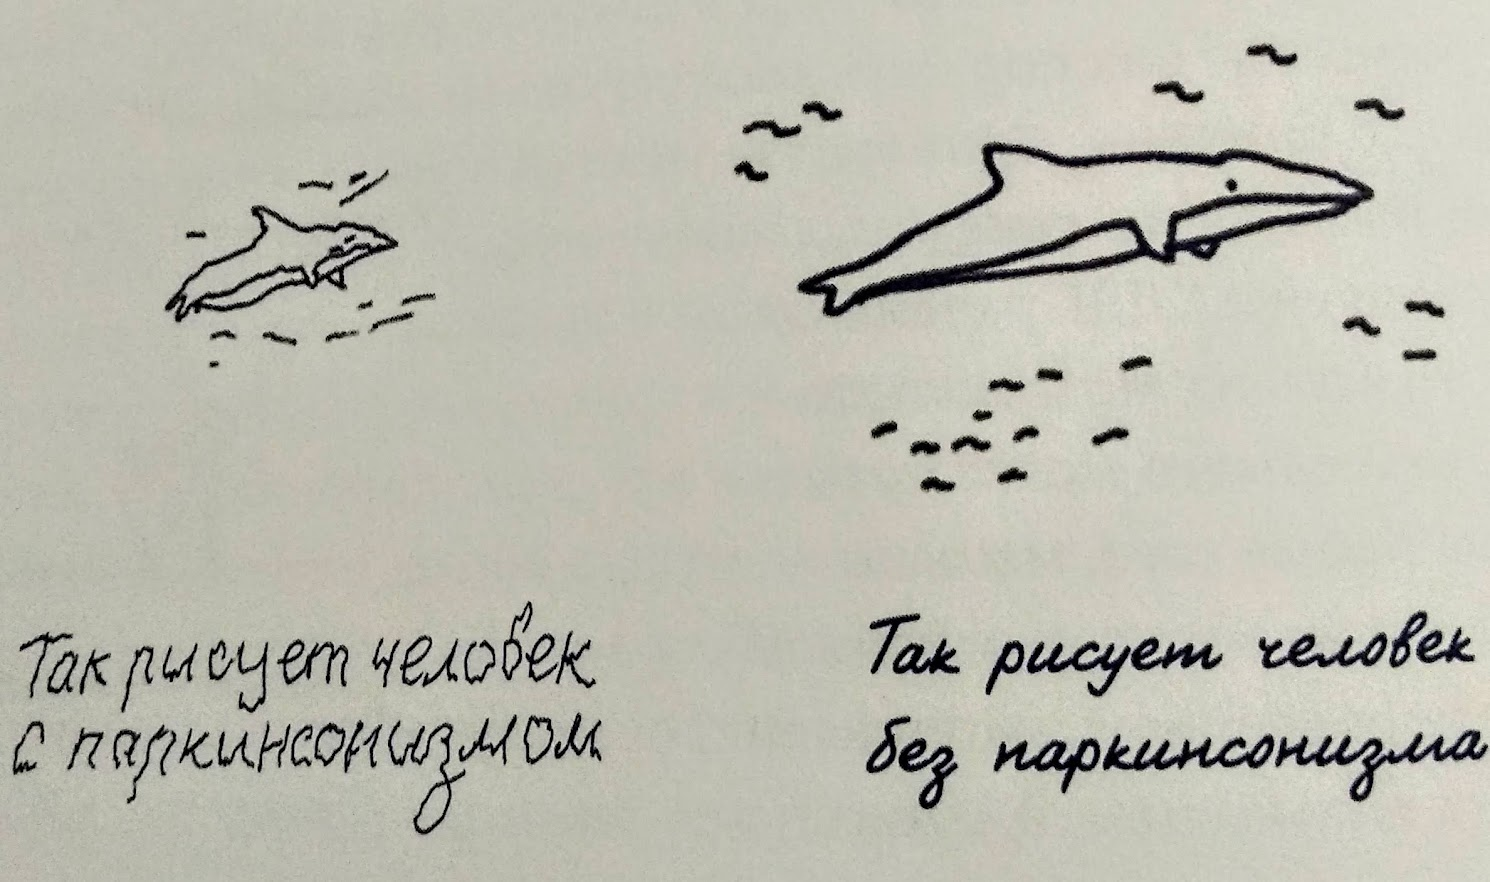 Так рисует человек
с паркинсонизмом
Так рисует человек
без паркинсонизма